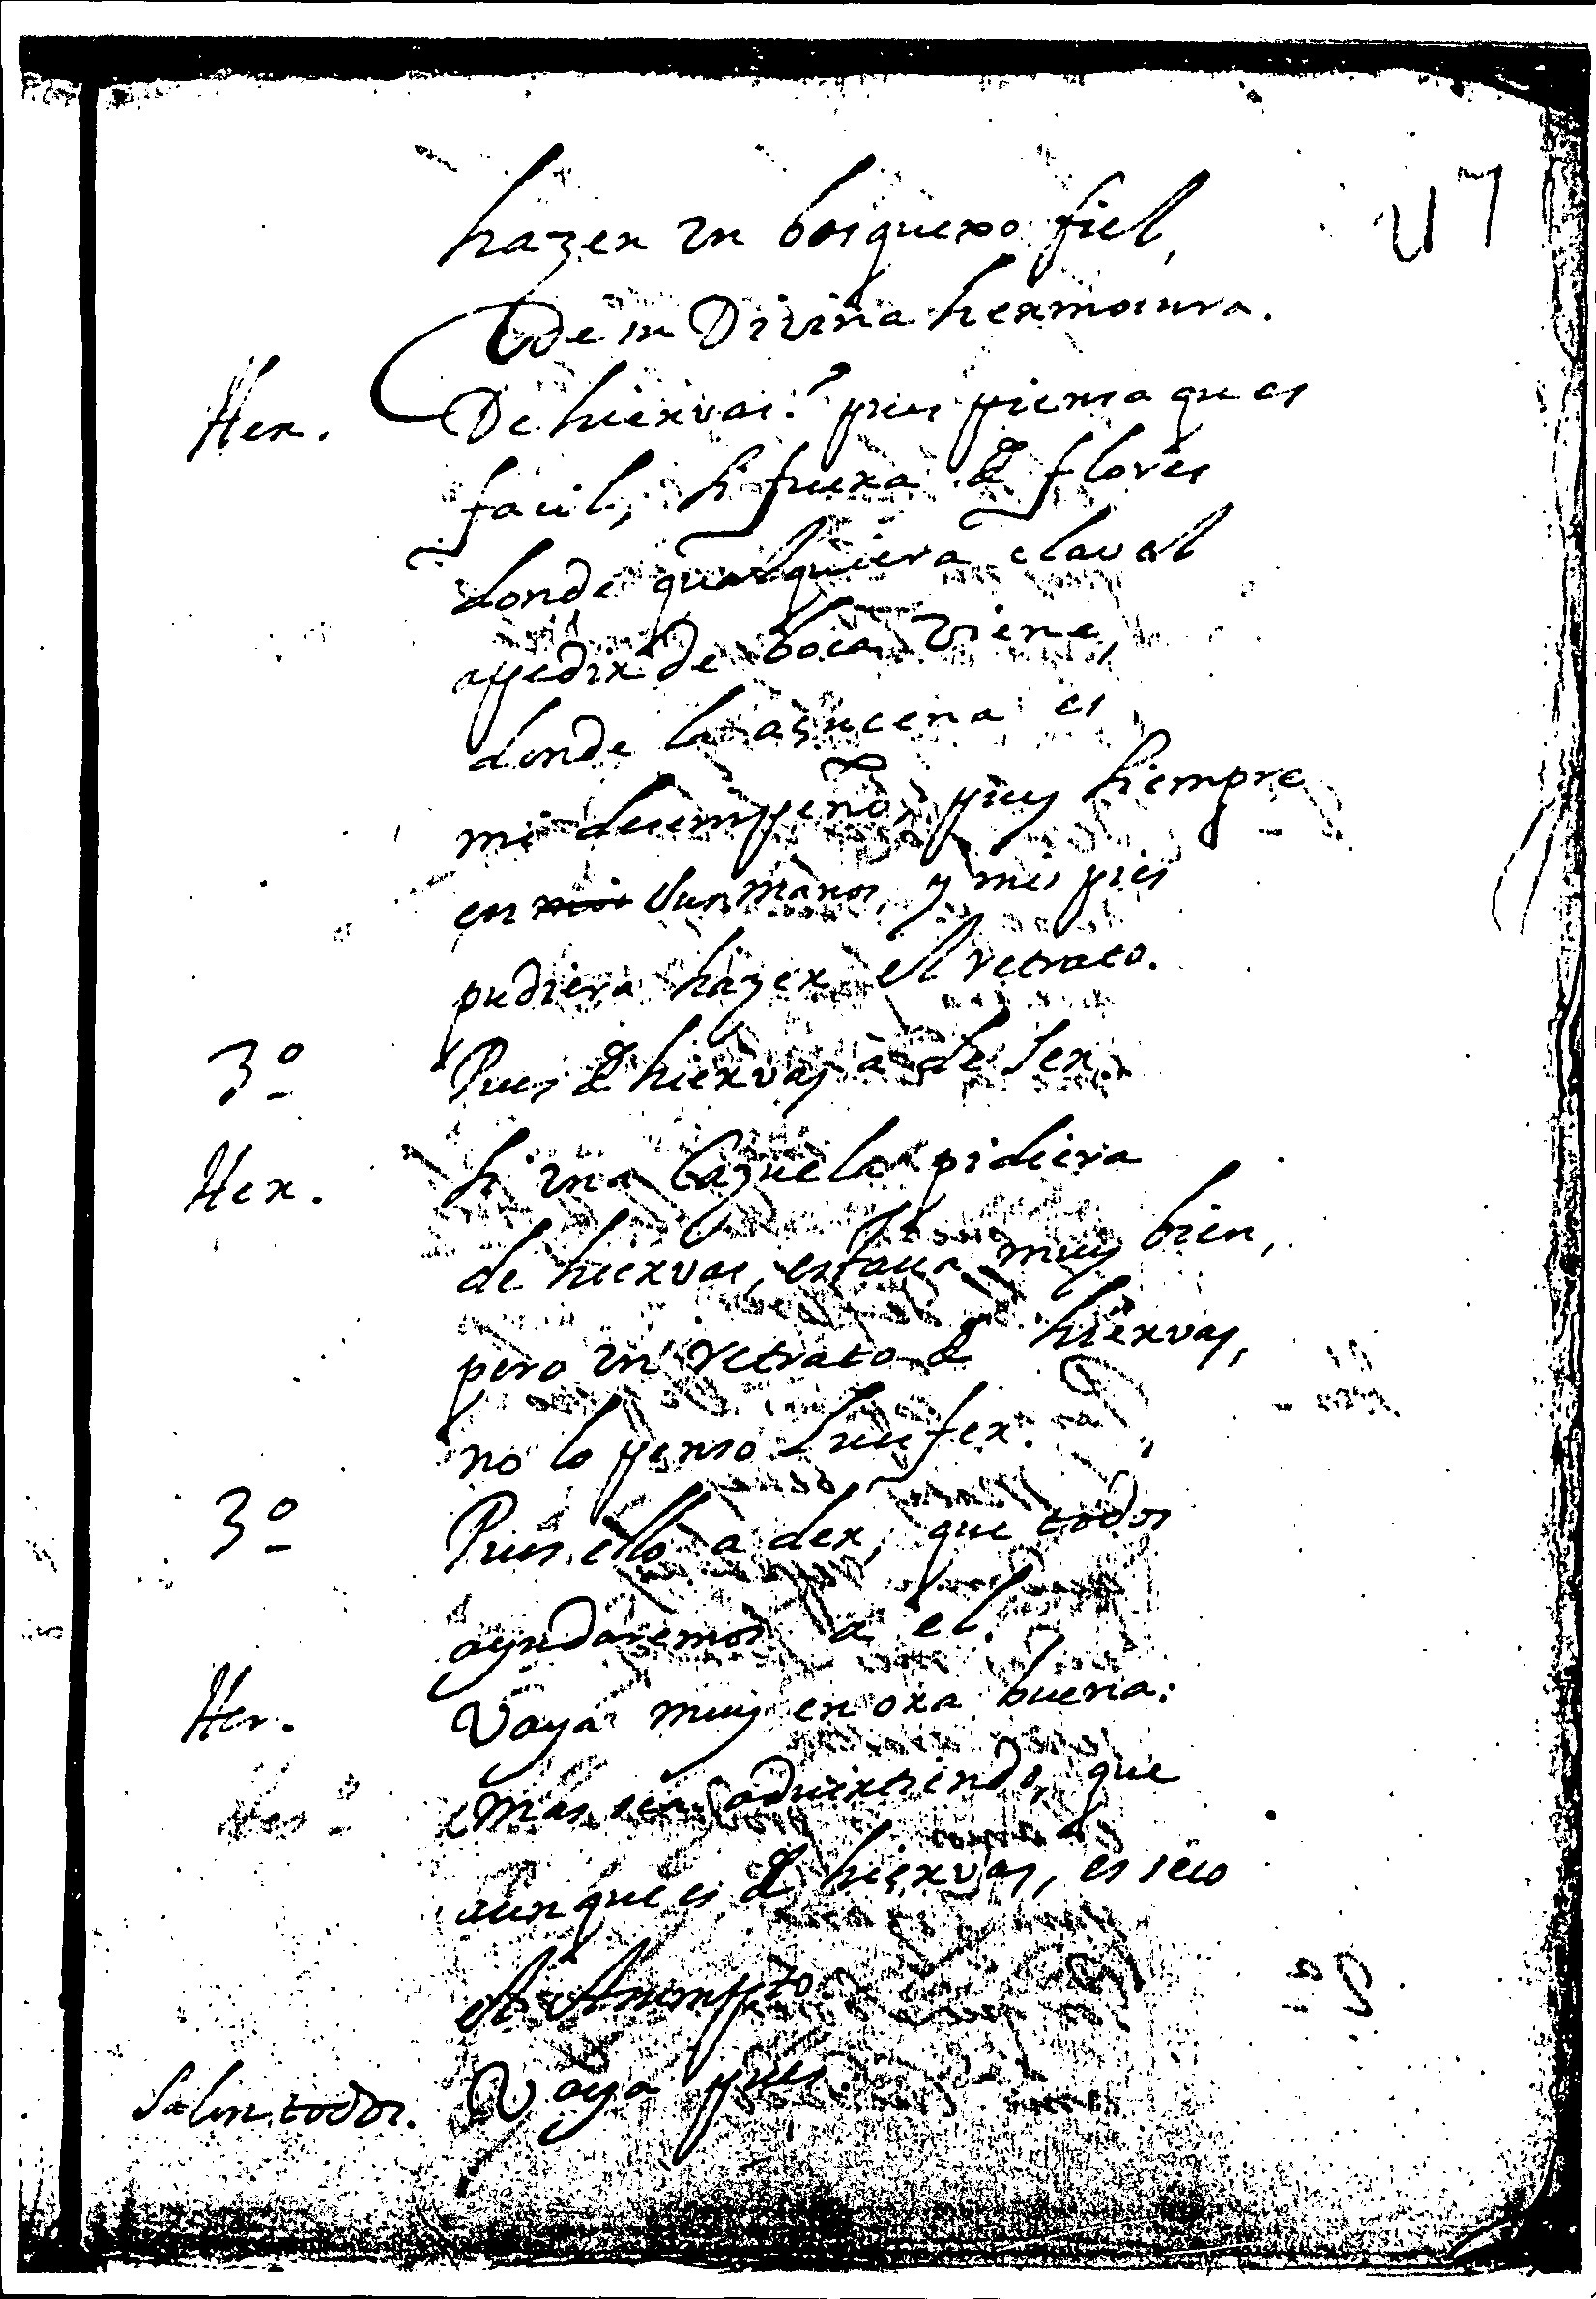 47
hazer un bosquexo fiel,
de su Divina hermosura.
Her. De hiervas? pues piensa que es
facil, si fuera de flores
donde qualquiera clavel
a pedir de boca viene,
donde la azucena es
mi desempeño, pues siempre
con sus manos, y mis pies
pudiera hazer el retrato.
3º Pues de hiervas a de ser.
Her. Si una Cazuela pidiera
de hiervas, estaua muy bien,
pero un retrato de hiervas,
no lo penso Lucifer.
3º Pues ello a de ser, que todos
ayudaremos a el.
Her. Vaya muy en ora buena:
Mas sea aduirtiendo, que
aunque es de hiervas, es seco
el Assumpto
Salen todos. Vaya pues.